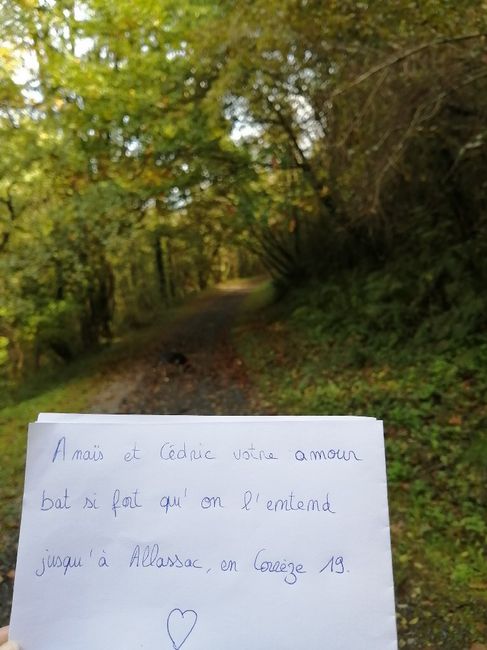 Anaïs et Cédric votre amour
bat si fort qu'on l'entend
jusqu'à Allassac, en Corrèze 19.